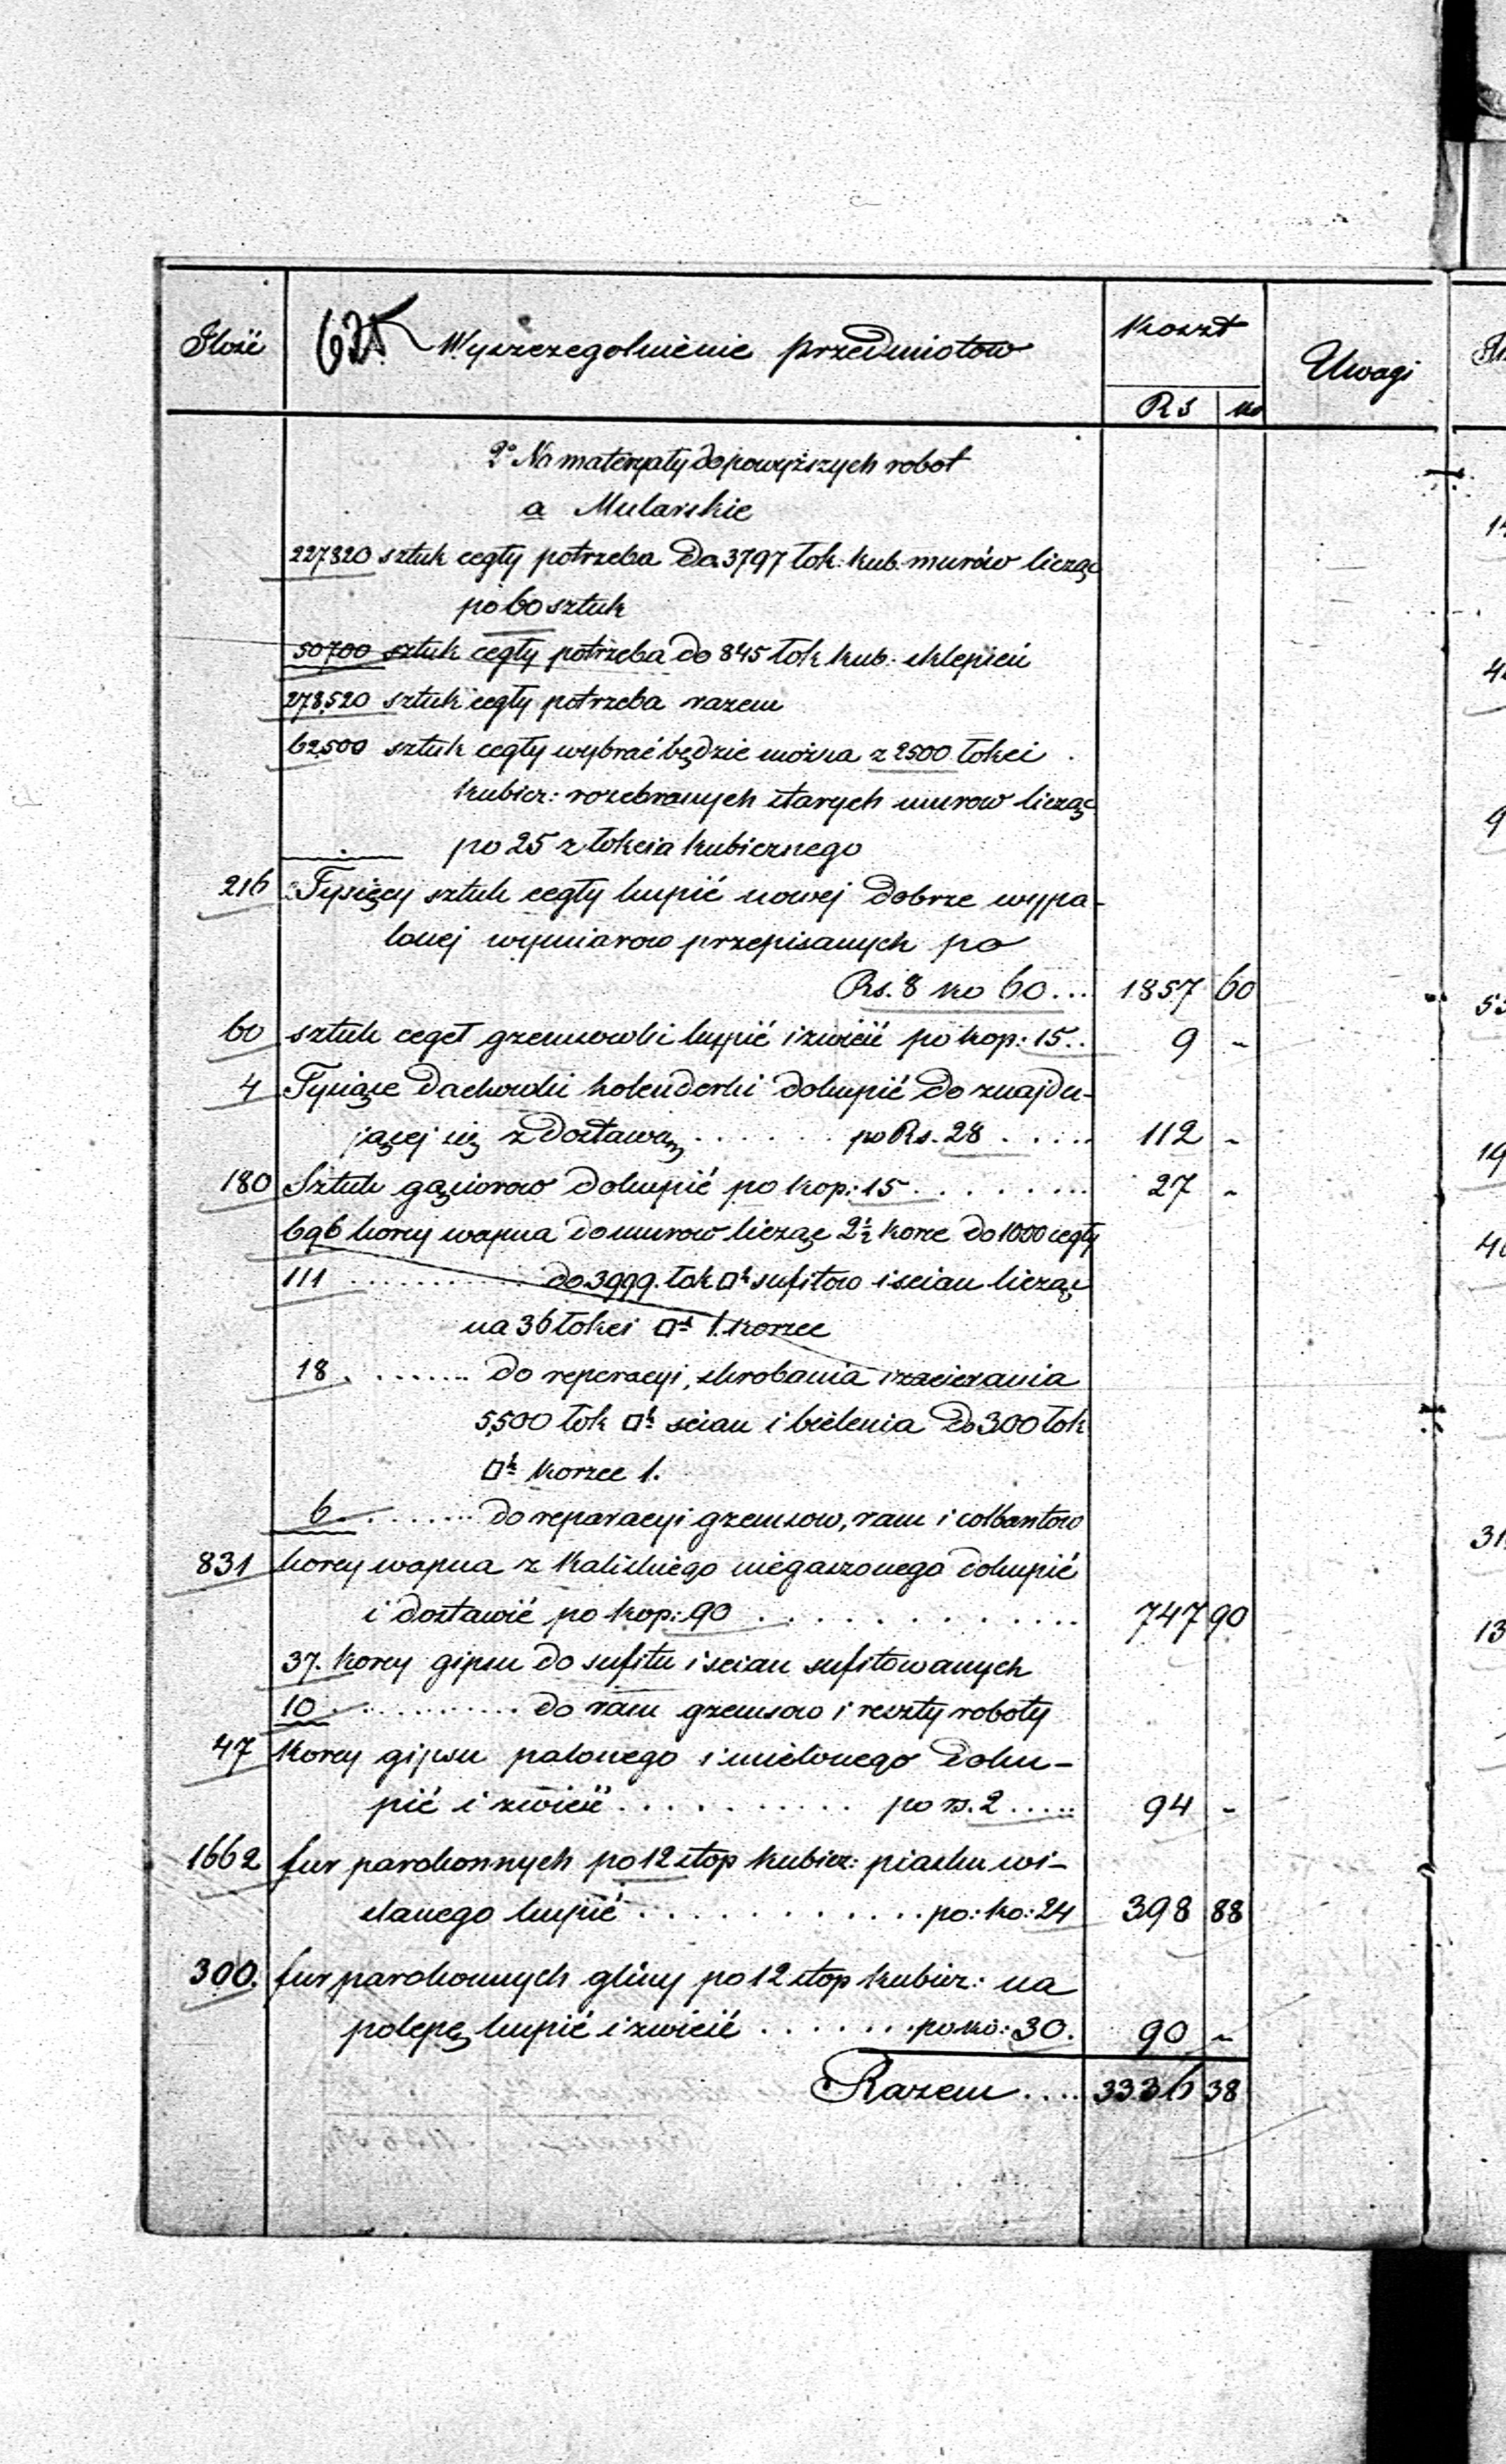 Ilość 625 Wyszczegolnienie przedmiotow Koszt Uwagi
Rs ko
2° Na materyały do powyższych robot
a Mularskie
227820 sztuk cegły potrzeba do 3797 łok: kub. murów licząc
po 60 sztuk
50700 sztuk cegły potrzeba do 845 łok kub: sklepień
278,520 sztuk cegły potrzeba razem
62500 sztuk cegły wybrać będzie można z 2500 łokci
kubicz: rozebranych starych murow licząc
po 25 z łokcia kubicznego
216 Tysięcy sztuk cegły kupić nowej dobrze wypa-
lonej wymiarow przepisanych po
Rs. 8 ko 60... 1857 60
60 sztuk cegeł gzemsowki kupić i zwieść po kop: 15.. 9 -
4 Tysiące dachowki holenderki dokupić do znajdu-
jącej się z dostawą . . . . . . po Rs. 28 . . . . . 112 -
180 Sztuk gąsiorow dokupić po kop: 15 . . . . . . . . 27 -
696 korcy wapna do murow licząc 2½ korce do 1000 cegły
111 . . . . . . . . . . . do 3999. łok □h sufitow i scian licząc
na 36 łokci □h 1. korzec
18 . . . . . . . . do reperacyi, skrobania i zacierania
5,500 łok □h scian i bielenia do 300 łok
□h korzec 1.
6 . . . . . . . . do reparacyi gzemsow, ram i
831 korcy wapna z Kaliskiego niegaszonego dokupić
i dostawić po kop: 90 . . . . . . . . . . . . 747 90
37. korcy gipsu do sufitu i scian sufitowanych
10 . . . . . . . . . . . do ram gzemsow i reszty roboty
47 Korcy gipsu palonego i mielonego doku-
pić i zwieść . . . . . . . . . . po rs. 2 . . . . . 94 -
1662 fur parokonnych po 12 stop kubicz: piasku wi-
slanego kupić . . . . . . . . . . . . po: ko: 24 398 88
300. fur parokonnych gliny po 12 stop kubicz: na
polepę kupić i zwieść . . . . . . . po ko: 30. 90 -
Razem . . . . 3336 38